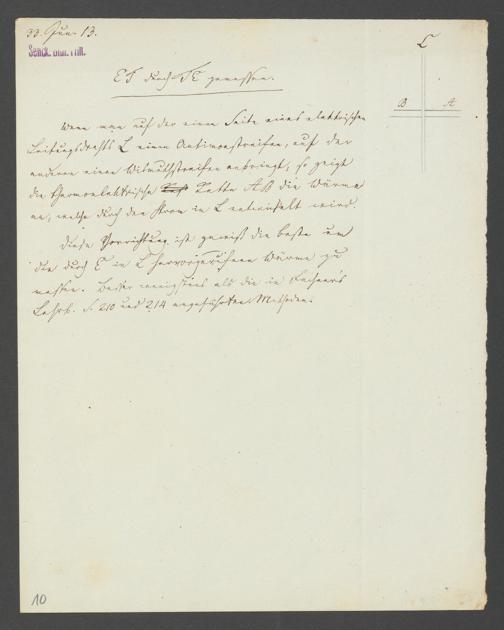 33. Jun. 13.
Senck. Bibl. Ffm.
L
B A
ET durch TE gemessen.
Wenn man auf der einen Seite eines elektrischen
Leitungsdrahts L einen Antimonstreifen, auf der
anderen einen Wismuthstreifen anbringt, so zeigt
die thermoelektrische Kette AB die Wärme
an, welche durch den Strom in L entwickelt wird.
Diese Vorrichtung ist gewiß die beste um
die durch E in L hervorgerufene Wärme zu
messen. Besser wenigstens als die in Fechner's
Lehrb. S. 210 und 214 angeführten Methoden.
10